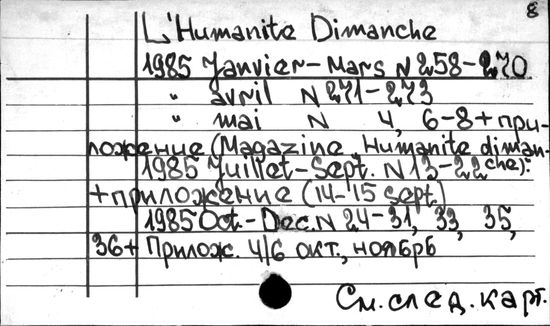 8
L'Humanite Dimanche
1985 Janvier-Mars N 258-270
" avril N 271-273
" mai N 4, 6-8 + при-
ложение (Magazine „Humanite diman-
1985 Juillet-Sept. N 13-22 che):
+ приложение (14-15 sept.)
1985 Oct.-Dec. N 24-31, 33, 35,
36+ Прилож. 4/6 окт., ноябрь
См. след. карт.